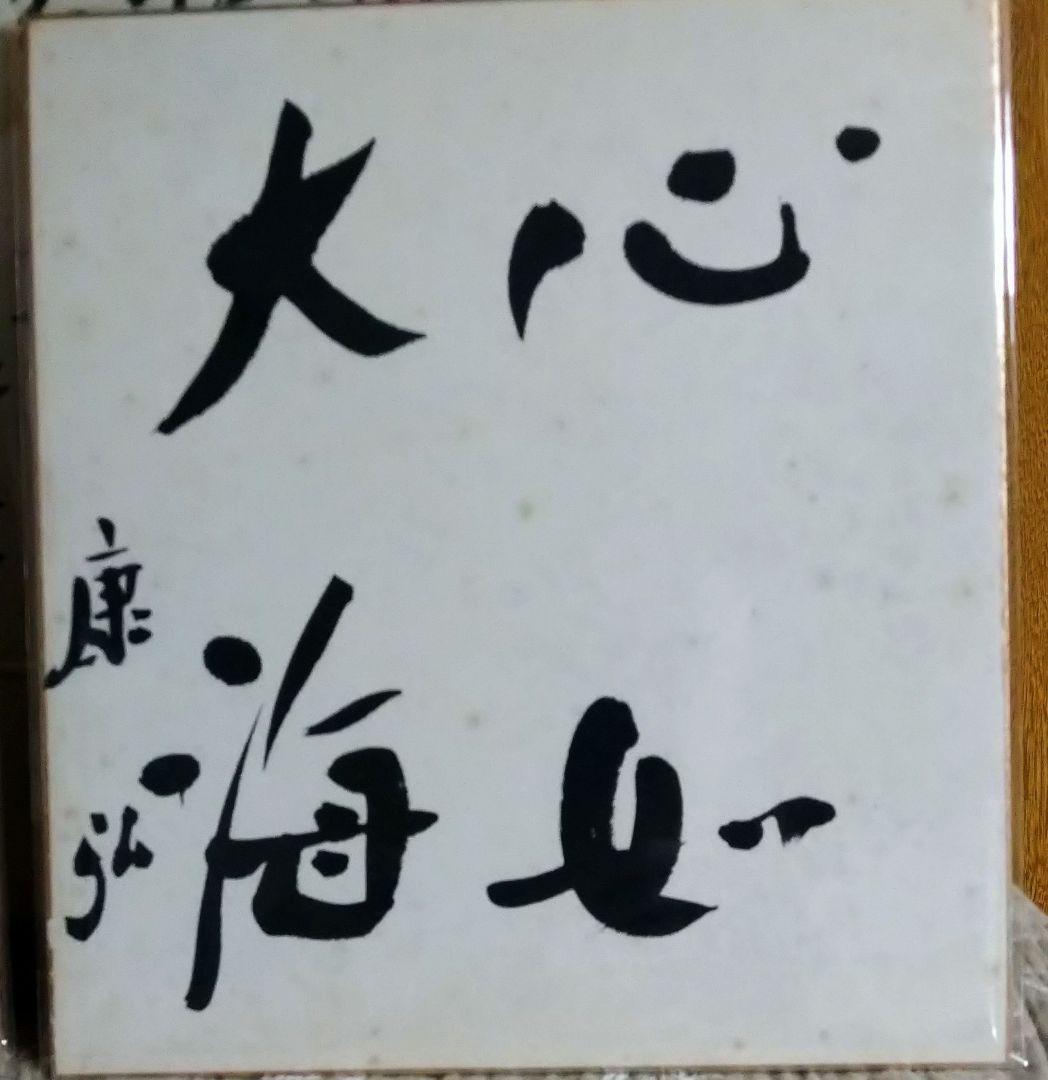 心如
大海
康弘